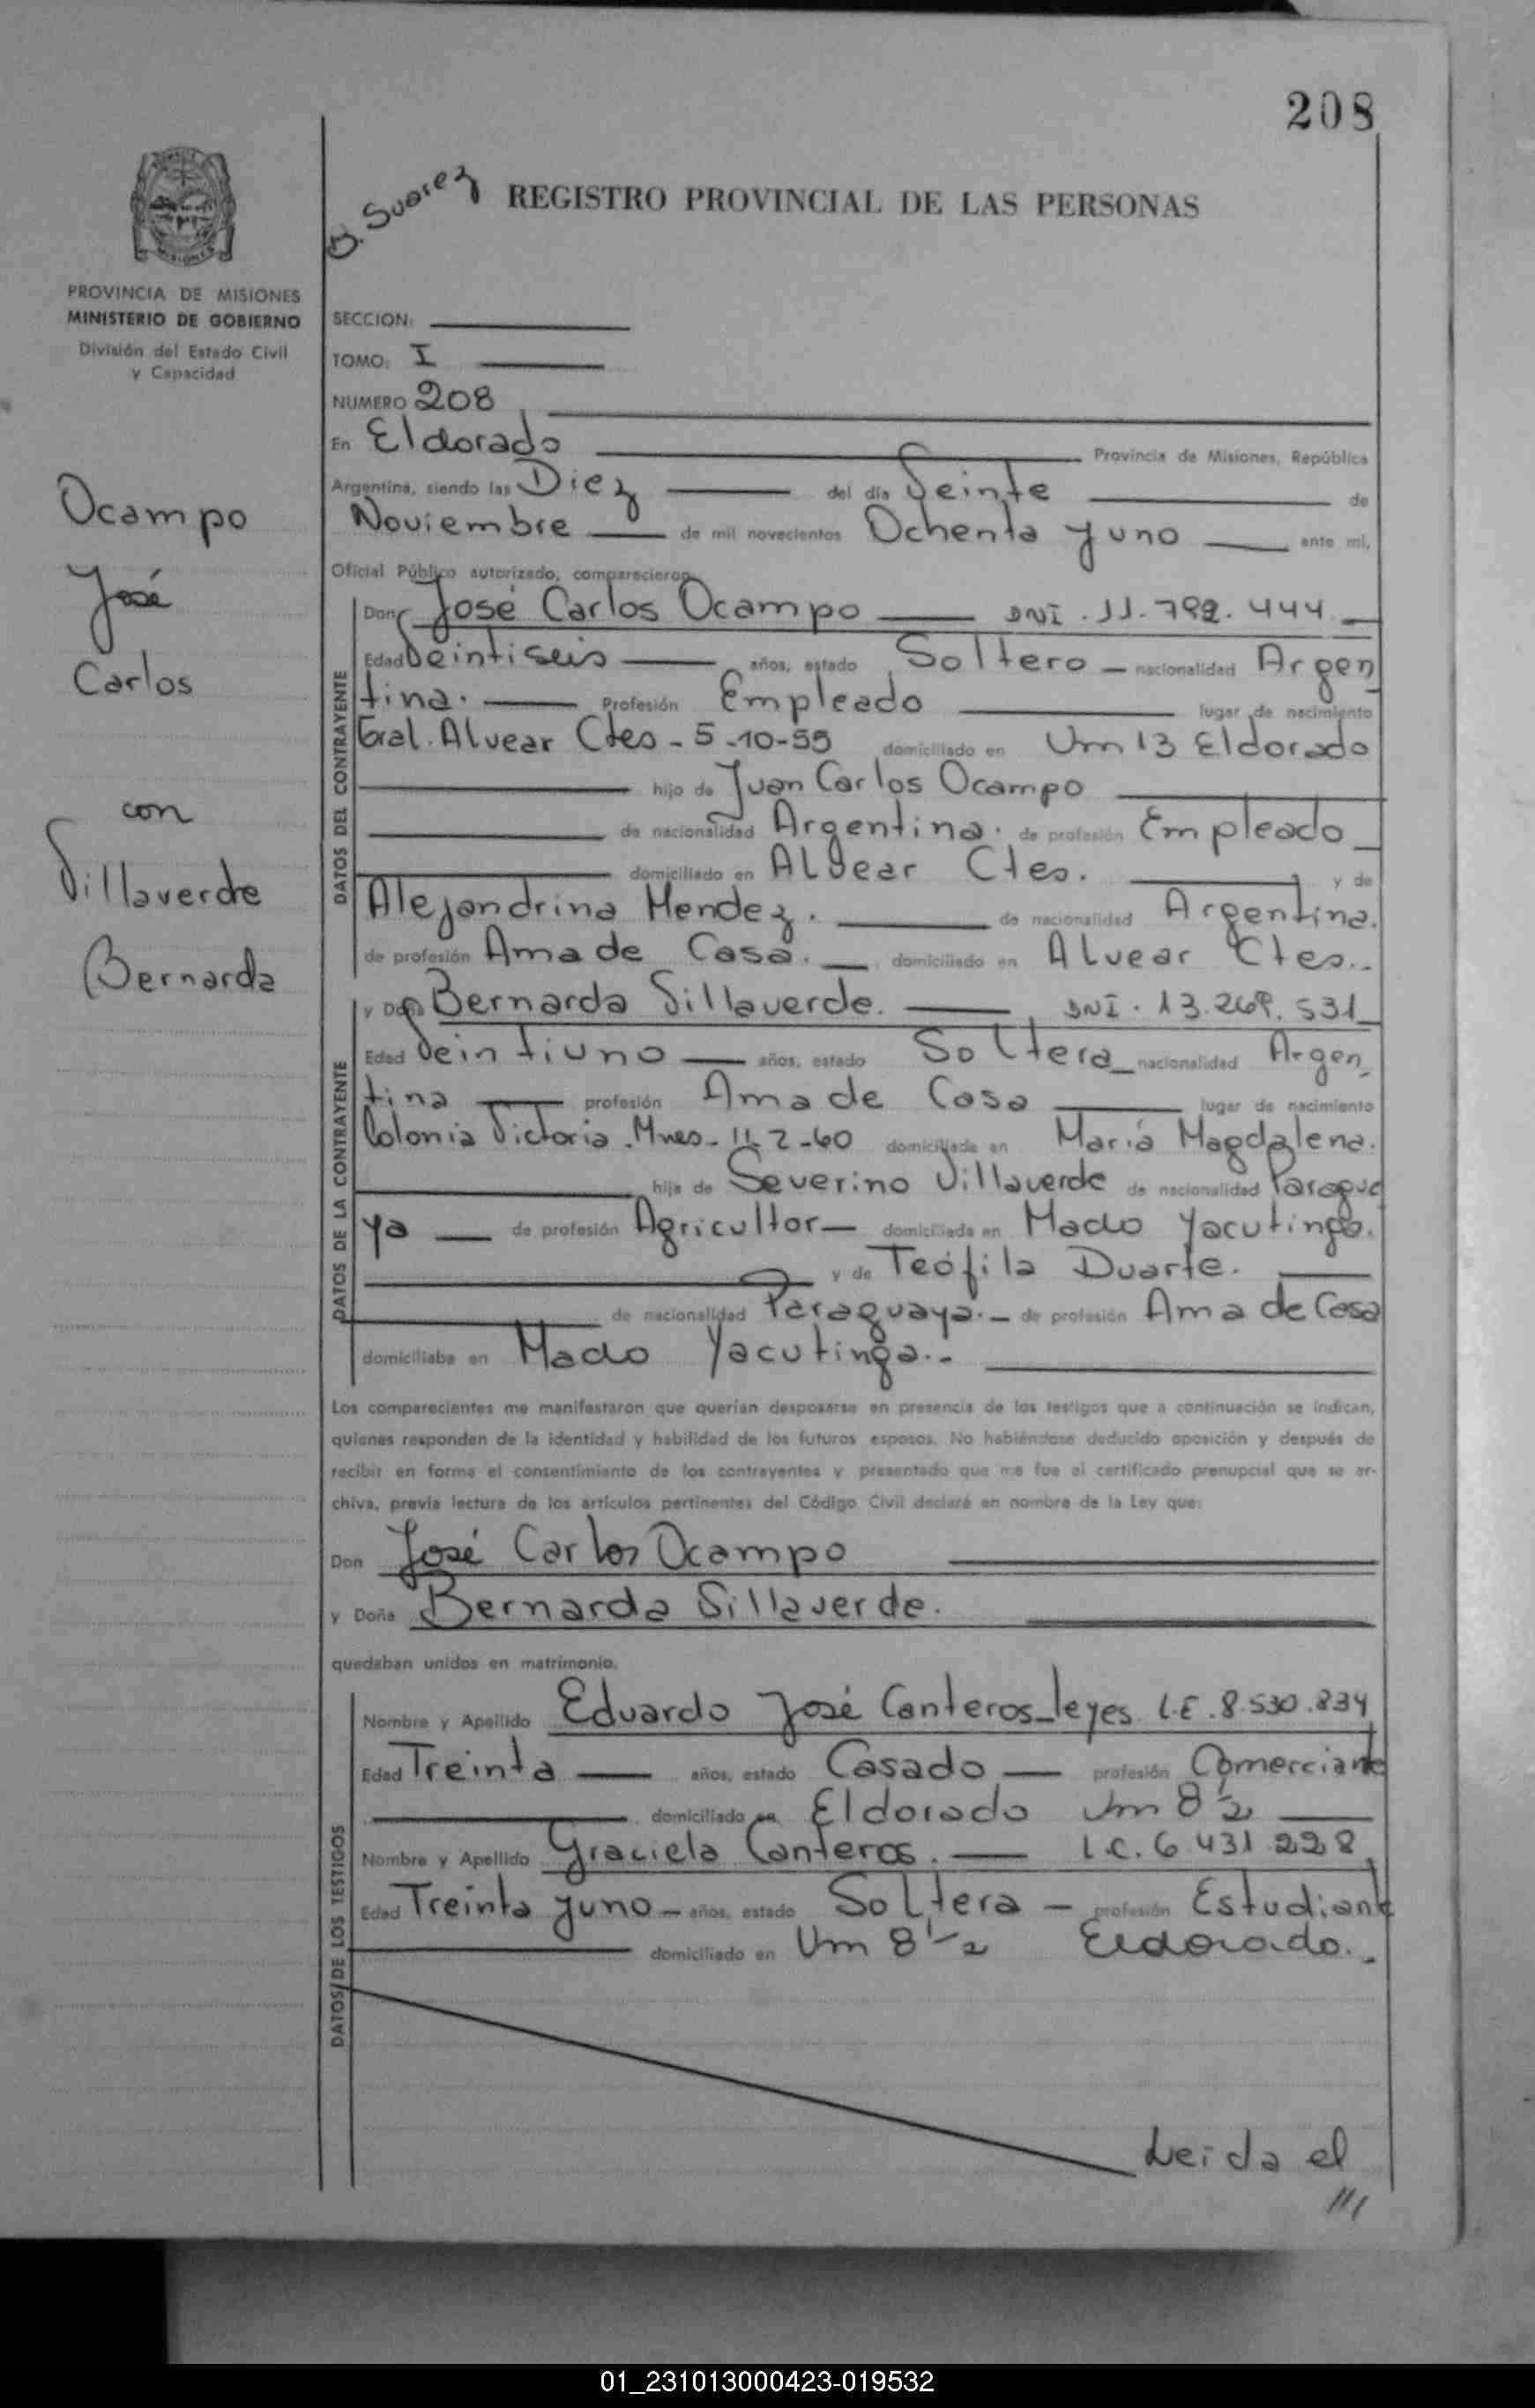 208
B. Suarez
REGISTRO PROVINCIAL DE LAS PERSONAS
PROVINCIA DE MISIONES
MINISTERIO DE GOBIERNO
División del Estado Civil
y Capacidad
Ocampo
José
Carlos
con
Villaverde
Bernarda
SECCION:
TOMO: I
NUMERO 208
En Eldorado Provincia de Misiones, República
Argentina, siendo las Diez del día Veinte de
Noviembre de mil novecientos Ochenta y uno ante mí,
Oficial Público autorizado, comparecieron
DATOS DEL CONTRAYENTE
Don José Carlos Ocampo DNI. 11.792.444.
Edad Veintiseis años, estado Soltero nacionalidad Argen
tina. Profesión Empleado lugar de nacimiento
Gral. Alvear Ctes - 5-10-55 domiciliado en Km 13 Eldorado
hijo de Juan Carlos Ocampo
de nacionalidad Argentina. de profesión Empleado
domiciliado en Alvear Ctes. y de
Alejandrina Mendez. de nacionalidad Argentina.
de profesión Ama de Casa. domiciliado en Alvear Ctes..
DATOS DE LA CONTRAYENTE
y Doña Bernarda Villaverde. DNI. 13.269.531
Edad Veintiuno años, estado Soltera nacionalidad Argen
tina profesión Ama de Casa lugar de nacimiento
Colonia Victoria. Mnes - 11-2-60 domiciliada en María Magdalena.
hija de Severino Villaverde de nacionalidad Paragua
ya de profesión Agricultor domiciliada en Mado Yacutinga.
y de Teófila Duarte.
de nacionalidad Paraguaya. de profesión Ama de Casa
domiciliaba en Mado Yacutinga..
Los comparecientes me manifestaron que querían desposarse en presencia de los testigos que a continuación se indican,
quienes responden de la identidad y habilidad de los futuros esposos. No habiéndose deducido oposición y después de
recibir en forma el consentimiento de los contrayentes y presentado que me fue el certificado prenupcial que se ar-
chiva, previa lectura de los artículos pertinentes del Código Civil declaré en nombre de la Ley que:
Don José Carlos Ocampo
y Doña Bernarda Villaverde.
quedaban unidos en matrimonio.
DATOS DE LOS TESTIGOS
Nombre y Apellido Eduardo José Canteros leyes L.E. 8.530.834
Edad Treinta años, estado Casado profesión Comerciante
domiciliado en Eldorado Km 8 1/2
Nombre y Apellido Graciela Canteros. L.C. 6.431.228
Edad Treinta y uno años, estado Soltera profesión Estudiante
domiciliado en Km 8 1/2 Eldorado.
Leida el
///
01_231013000423-019532